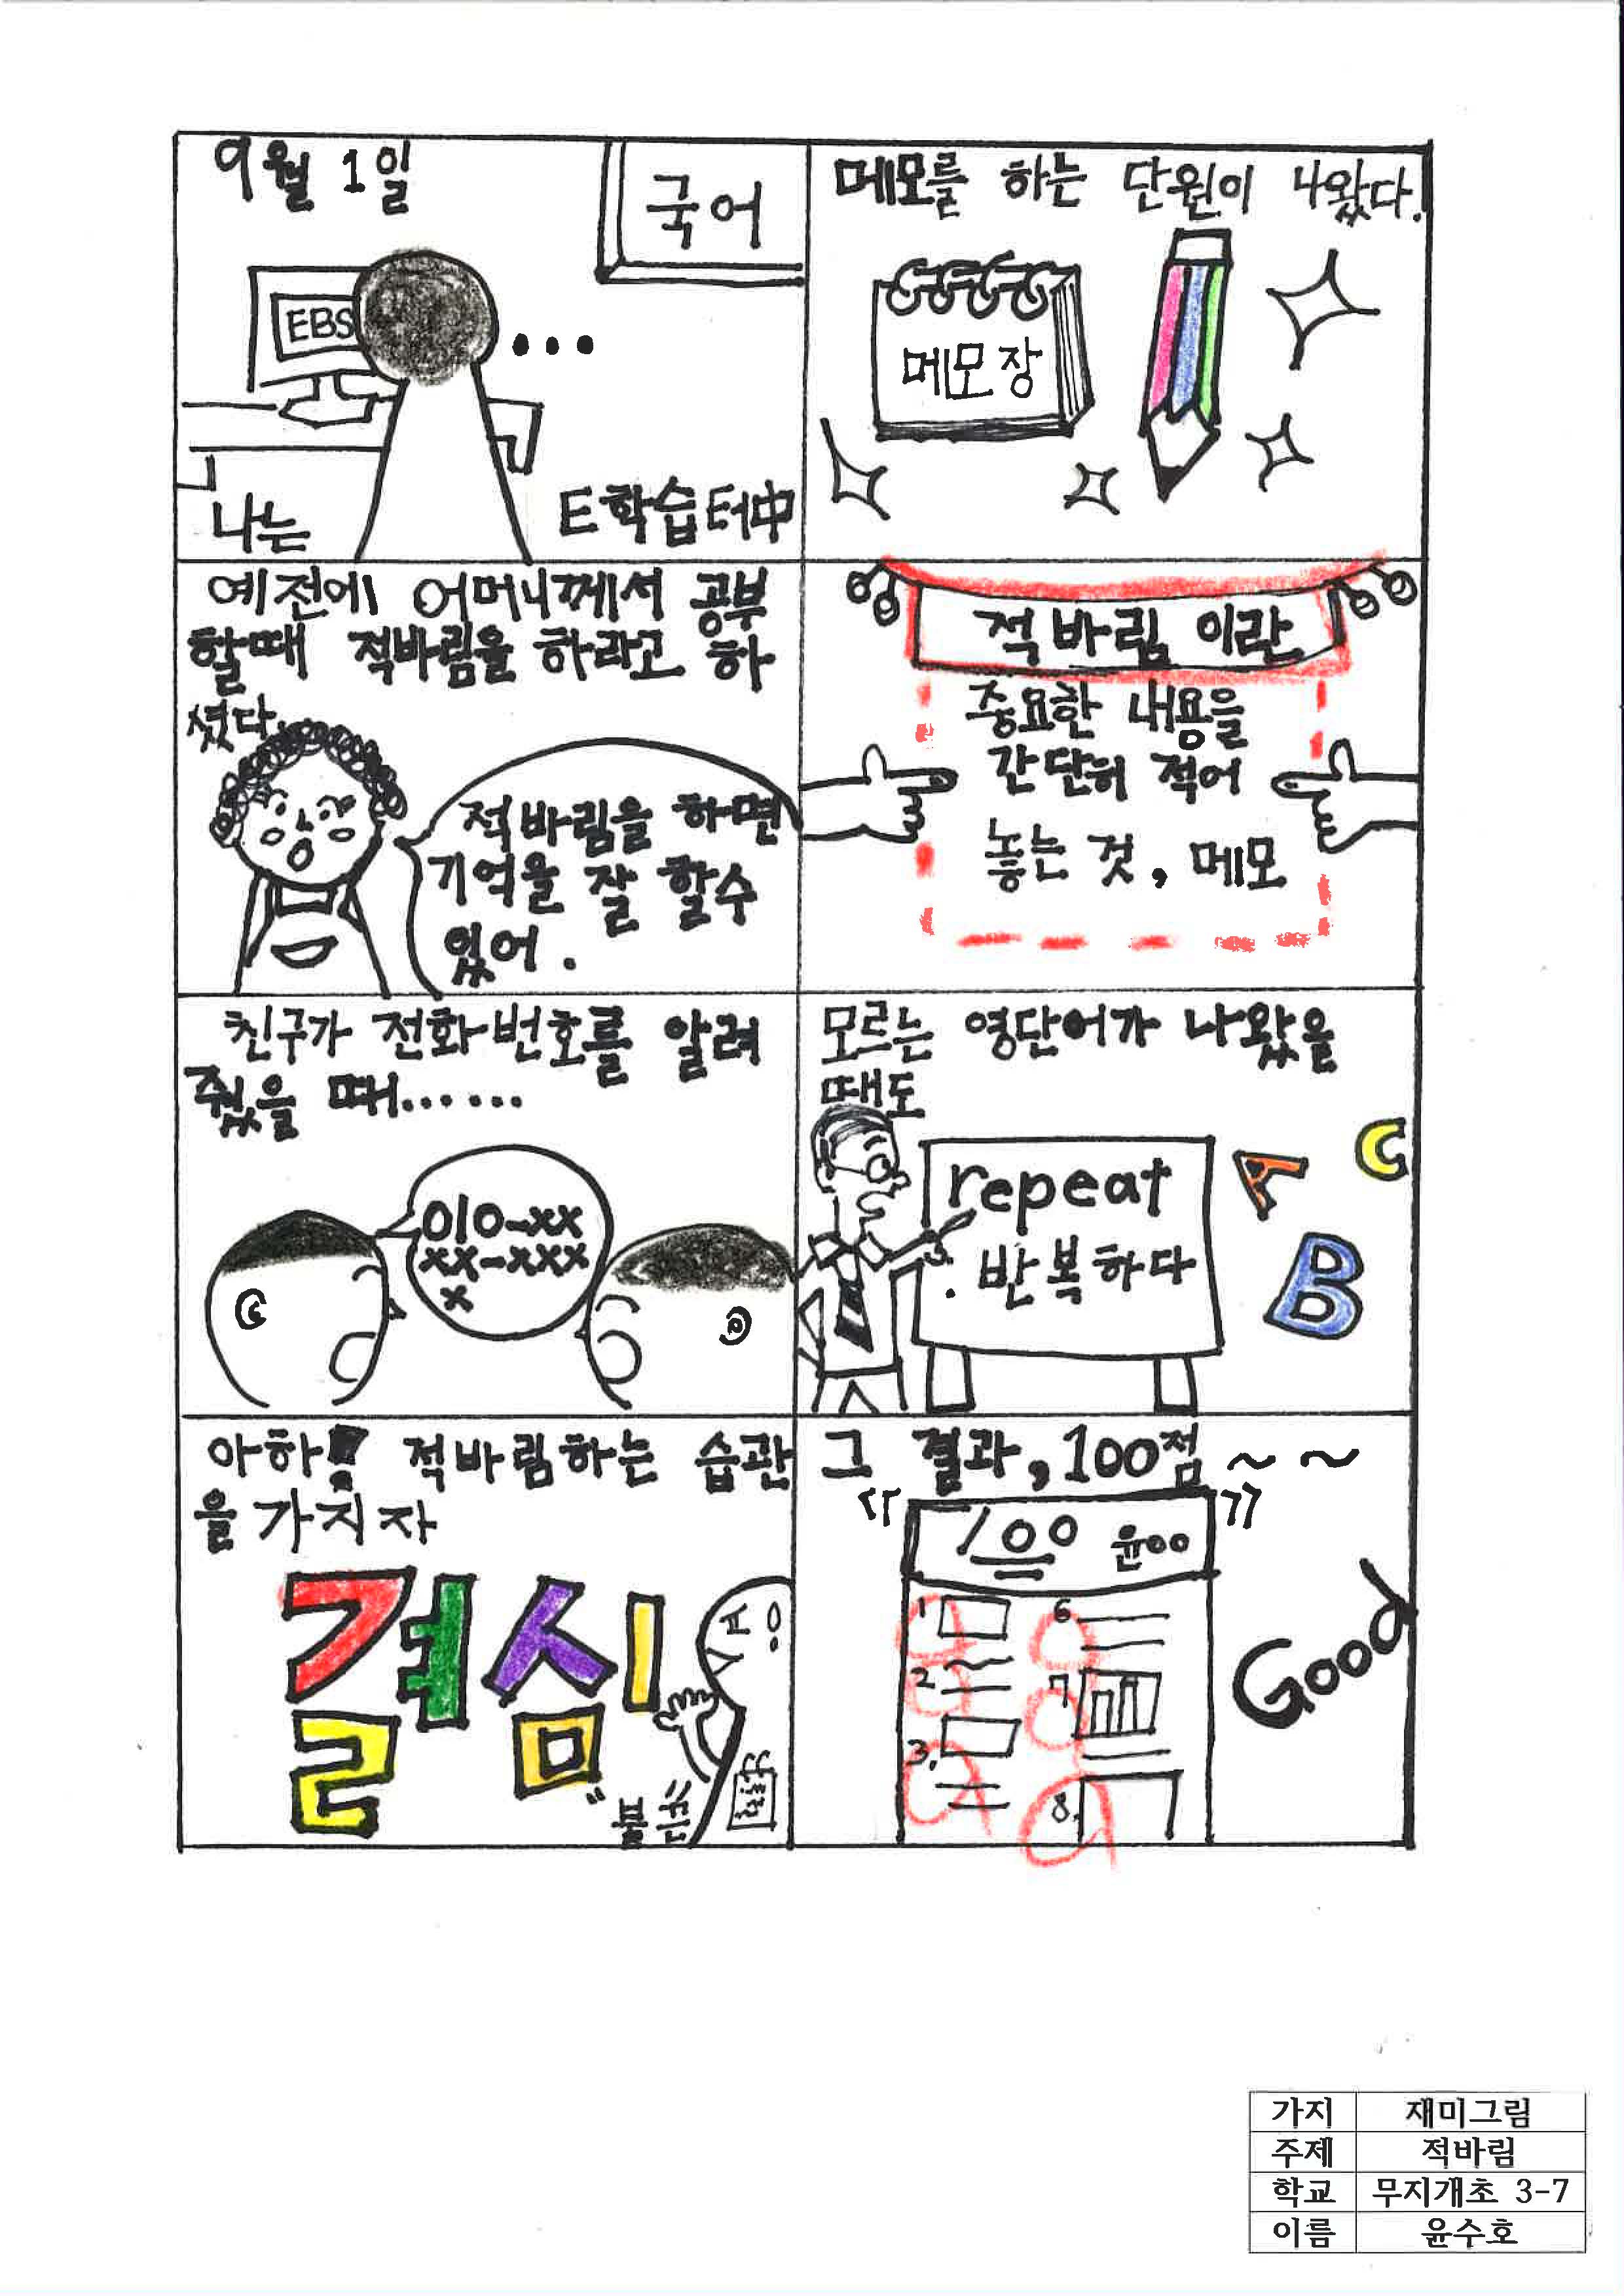 9월 1일
국어
EBS
...
나는
E학습터中
메모를 하는 단원이 나왔다.
메모장
예전에 어머니께서 공부
할때 적바림을 하라고 하
셨다.
적바림을 하면
기억을 잘 할수
있어.
적바림 이란
중요한 내용을
간단히 적어
놓는 것, 메모
친구가 전화번호를 알려
줬을 때......
010-xx
xx-xxx
x
모르는 영단어가 나왔을
때도
repeat
. 반복하다
A C
B
아하! 적바림하는 습관
을 가지자
결심
불끈
그 결과, 100점~~
100 윤00
1 6
2. 7
3. 8.
Good
가지 재미그림
주제 적바림
학교 무지개초 3-7
이름 윤수호